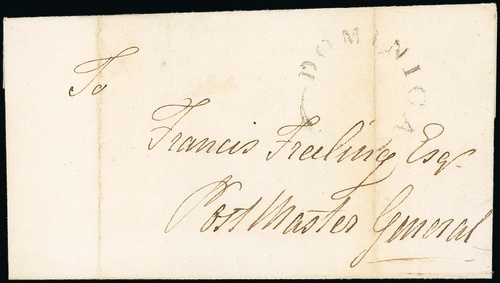 DOMINICA
To
Francis Freeling Esqr.
Post Master General